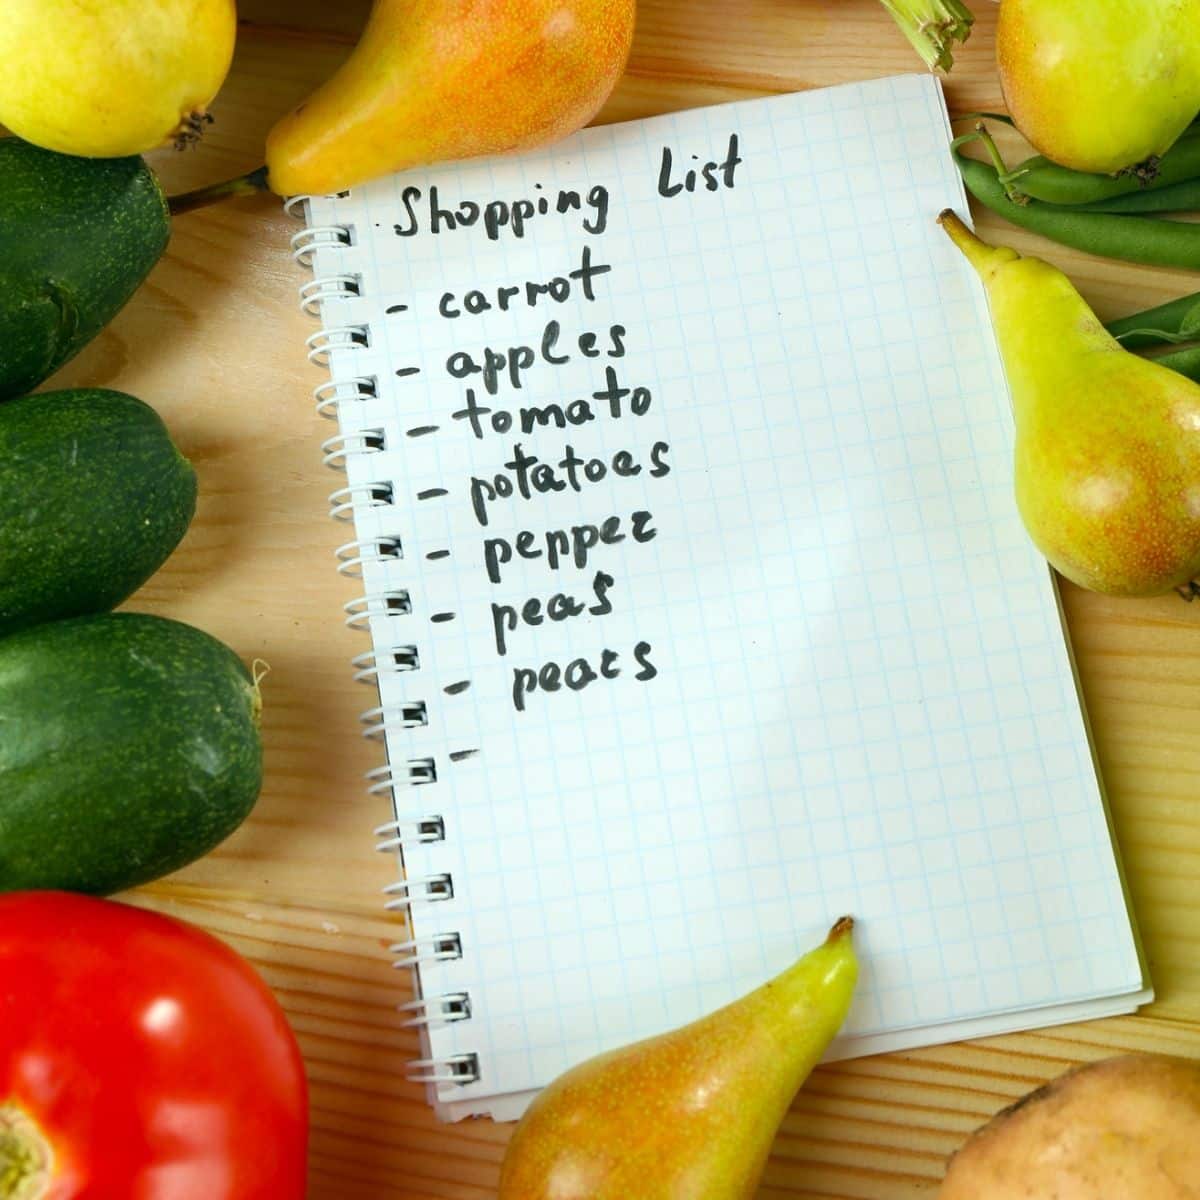 Shopping List
- carrot
- apples
- tomato
- potatoes
- pepper
- peas
- pears
-